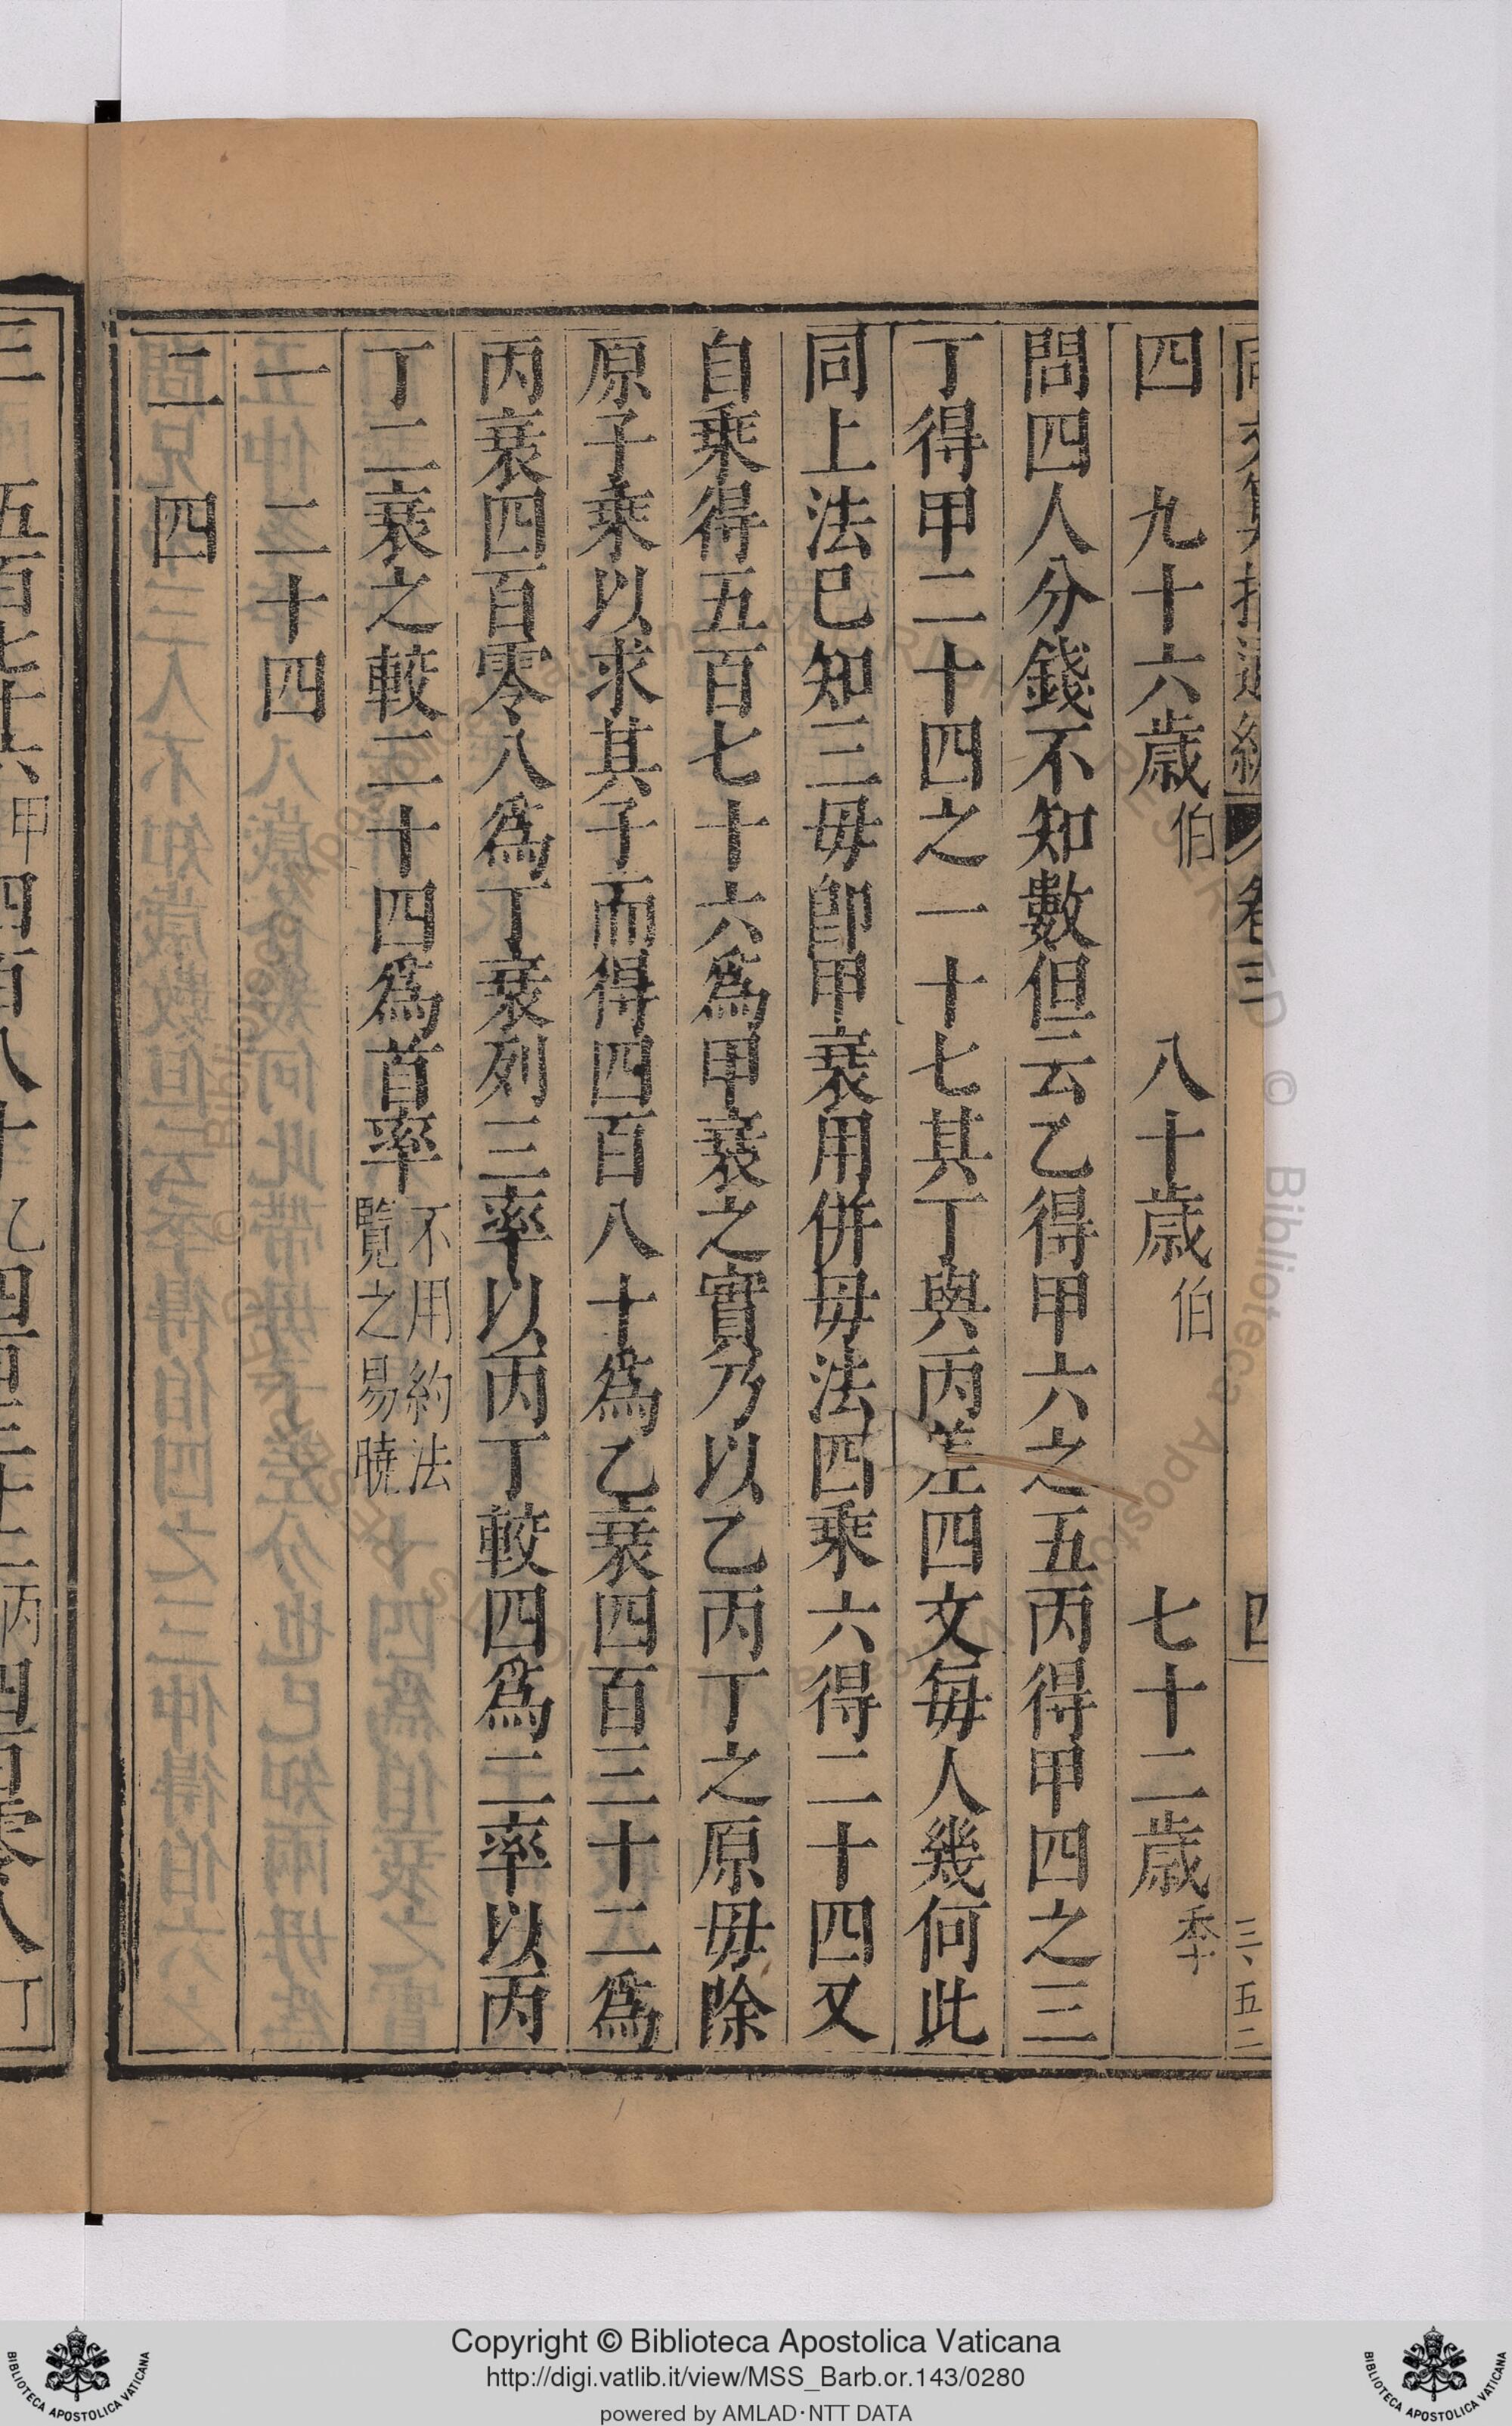 四 九十六歲伯 八十歲伯 七十二歲季
問四人分錢不知數但云乙得甲六之五丙得甲四之三
丁得甲二十四之一十七其丁與丙差四文每人幾何此
同上法已知三毋卽甲衰用併毋法四乘六得二十四又
自乘得五百七十六爲甲衰之實乃以乙丙丁之原毋除
原子乘以求其子而得四百八十爲乙衰四百三十二爲
丙衰四百零八爲丁衰列三率以丙丁較四爲二率以丙
丁二衰之較二十四爲首率不用約法
覽之易曉
一 二十四
二 四
三 五百七十六甲四百八十乙四百三十二丙四百零八丁
卷三
四
三、五二
Copyright © Biblioteca Apostolica Vaticana
http://digi.vatlib.it/view/MSS_Barb.or.143/0280
powered by AMLAD·NTT DATA
BIBLIOTECA APOSTOLICA VATICANA
BIBLIOTECA APOSTOLICA VATICANA